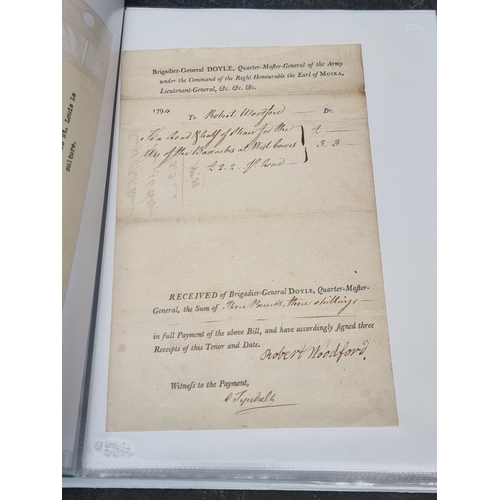 St. Louis is
culture.
Brigadier-General DOYLE, Quarter-Master-General of the Army
under the Command of the Right Honourable the Earl of MOIRA,
Lieutenant-General, &c. &c. &c.
1794 To Robert Woodford Dr.
To a Load & half of Straw for the
Use of the Barracks at West Cowes 3..3
2..2..
RECEIVED of Brigadier-General DOYLE, Quarter-Master-
General, the Sum of Three Pounds, three shillings
in full Payment of the above Bill, and have accordingly signed three
Receipts of this Tenor and Date.
Robert Woodford.
Witness to the Payment,